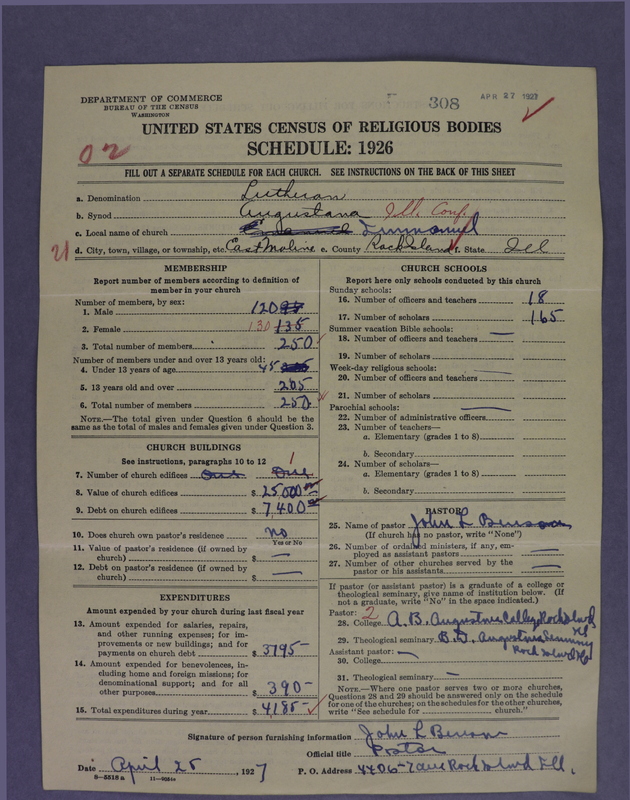 DEPARTMENT OF COMMERCE
BUREAU OF THE CENSUS
WASHINGTON
308
APR 27 1927
UNITED STATES CENSUS OF RELIGIOUS BODIES
SCHEDULE: 1926
FILL OUT A SEPARATE SCHEDULE FOR EACH CHURCH. SEE INSTRUCTIONS ON THE BACK OF THIS SHEET
a. Denomination Lutheran
b. Synod Augustana Ill. Conf.
c. Local name of church Immanuel
d. City, town, village, or township, etc. East Moline e. County Rock Island f. State Ill
MEMBERSHIP
Report number of members according to definition of
member in your church
Number of members, by sex:
1. Male 120
2. Female 130 135
3. Total number of members 250
Number of members under and over 13 years old:
4. Under 13 years of age 45
5. 13 years old and over 205
6. Total number of members 250
NOTE.—The total given under Question 6 should be the
same as the total of males and females given under Question 3.
CHURCH BUILDINGS
See instructions, paragraphs 10 to 12
7. Number of church edifices One One 1
8. Value of church edifices $ 25,000
9. Debt on church edifices $ 7,400
10. Does church own pastor's residence? No
Yes or No
11. Value of pastor's residence (if owned by
church) $ —
12. Debt on pastor's residence (if owned by
church) $ —
EXPENDITURES
Amount expended by your church during last fiscal year
13. Amount expended for salaries, repairs,
and other running expenses; for im-
provements or new buildings; and for
payments on church debt $ 3795-
14. Amount expended for benevolences, in-
cluding home and foreign missions; for
denominational support; and for all
other purposes $ 390-
15. Total expenditures during year $ 4,185-
CHURCH SCHOOLS
Report here only schools conducted by this church
Sunday schools:
16. Number of officers and teachers 18
17. Number of scholars 165
Summer vacation Bible schools:
18. Number of officers and teachers —
19. Number of scholars
Week-day religious schools:
20. Number of officers and teachers —
21. Number of scholars
Parochial schools:
22. Number of administrative officers —
23. Number of teachers—
a. Elementary (grades 1 to 8)
b. Secondary
24. Number of scholars—
a. Elementary (grades 1 to 8)
b. Secondary
PASTOR
25. Name of pastor John L Benson
(If church has no pastor, write "None")
26. Number of ordained ministers, if any, em-
ployed as assistant pastors —
27. Number of other churches served by the
pastor or his assistants —
If pastor (or assistant pastor) is a graduate of a college or
theological seminary, give name of institution below. (If
not a graduate, write "No" in the space indicated.)
Pastor: 2
28. College A.B. Augustana College Rock Island Ill
29. Theological seminary B.D. Augustana Seminary
Rock Island Ill
Assistant pastor: —
30. College
31. Theological seminary —
NOTE.—Where one pastor serves two or more churches,
Questions 28 and 29 should be answered only on the schedule
for one of the churches; on the schedules for the other churches,
write "See schedule for church."
Signature of person furnishing information John L Benson
Official title Pastor
Date April 25, 1927 P. O. Address 4406-7 ave Rock Island Ill.
8—5518a